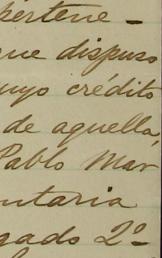 pertene-
que dispuso
cuyo crédito
de aquella,
Pablo Mar
entaria
gado 2º